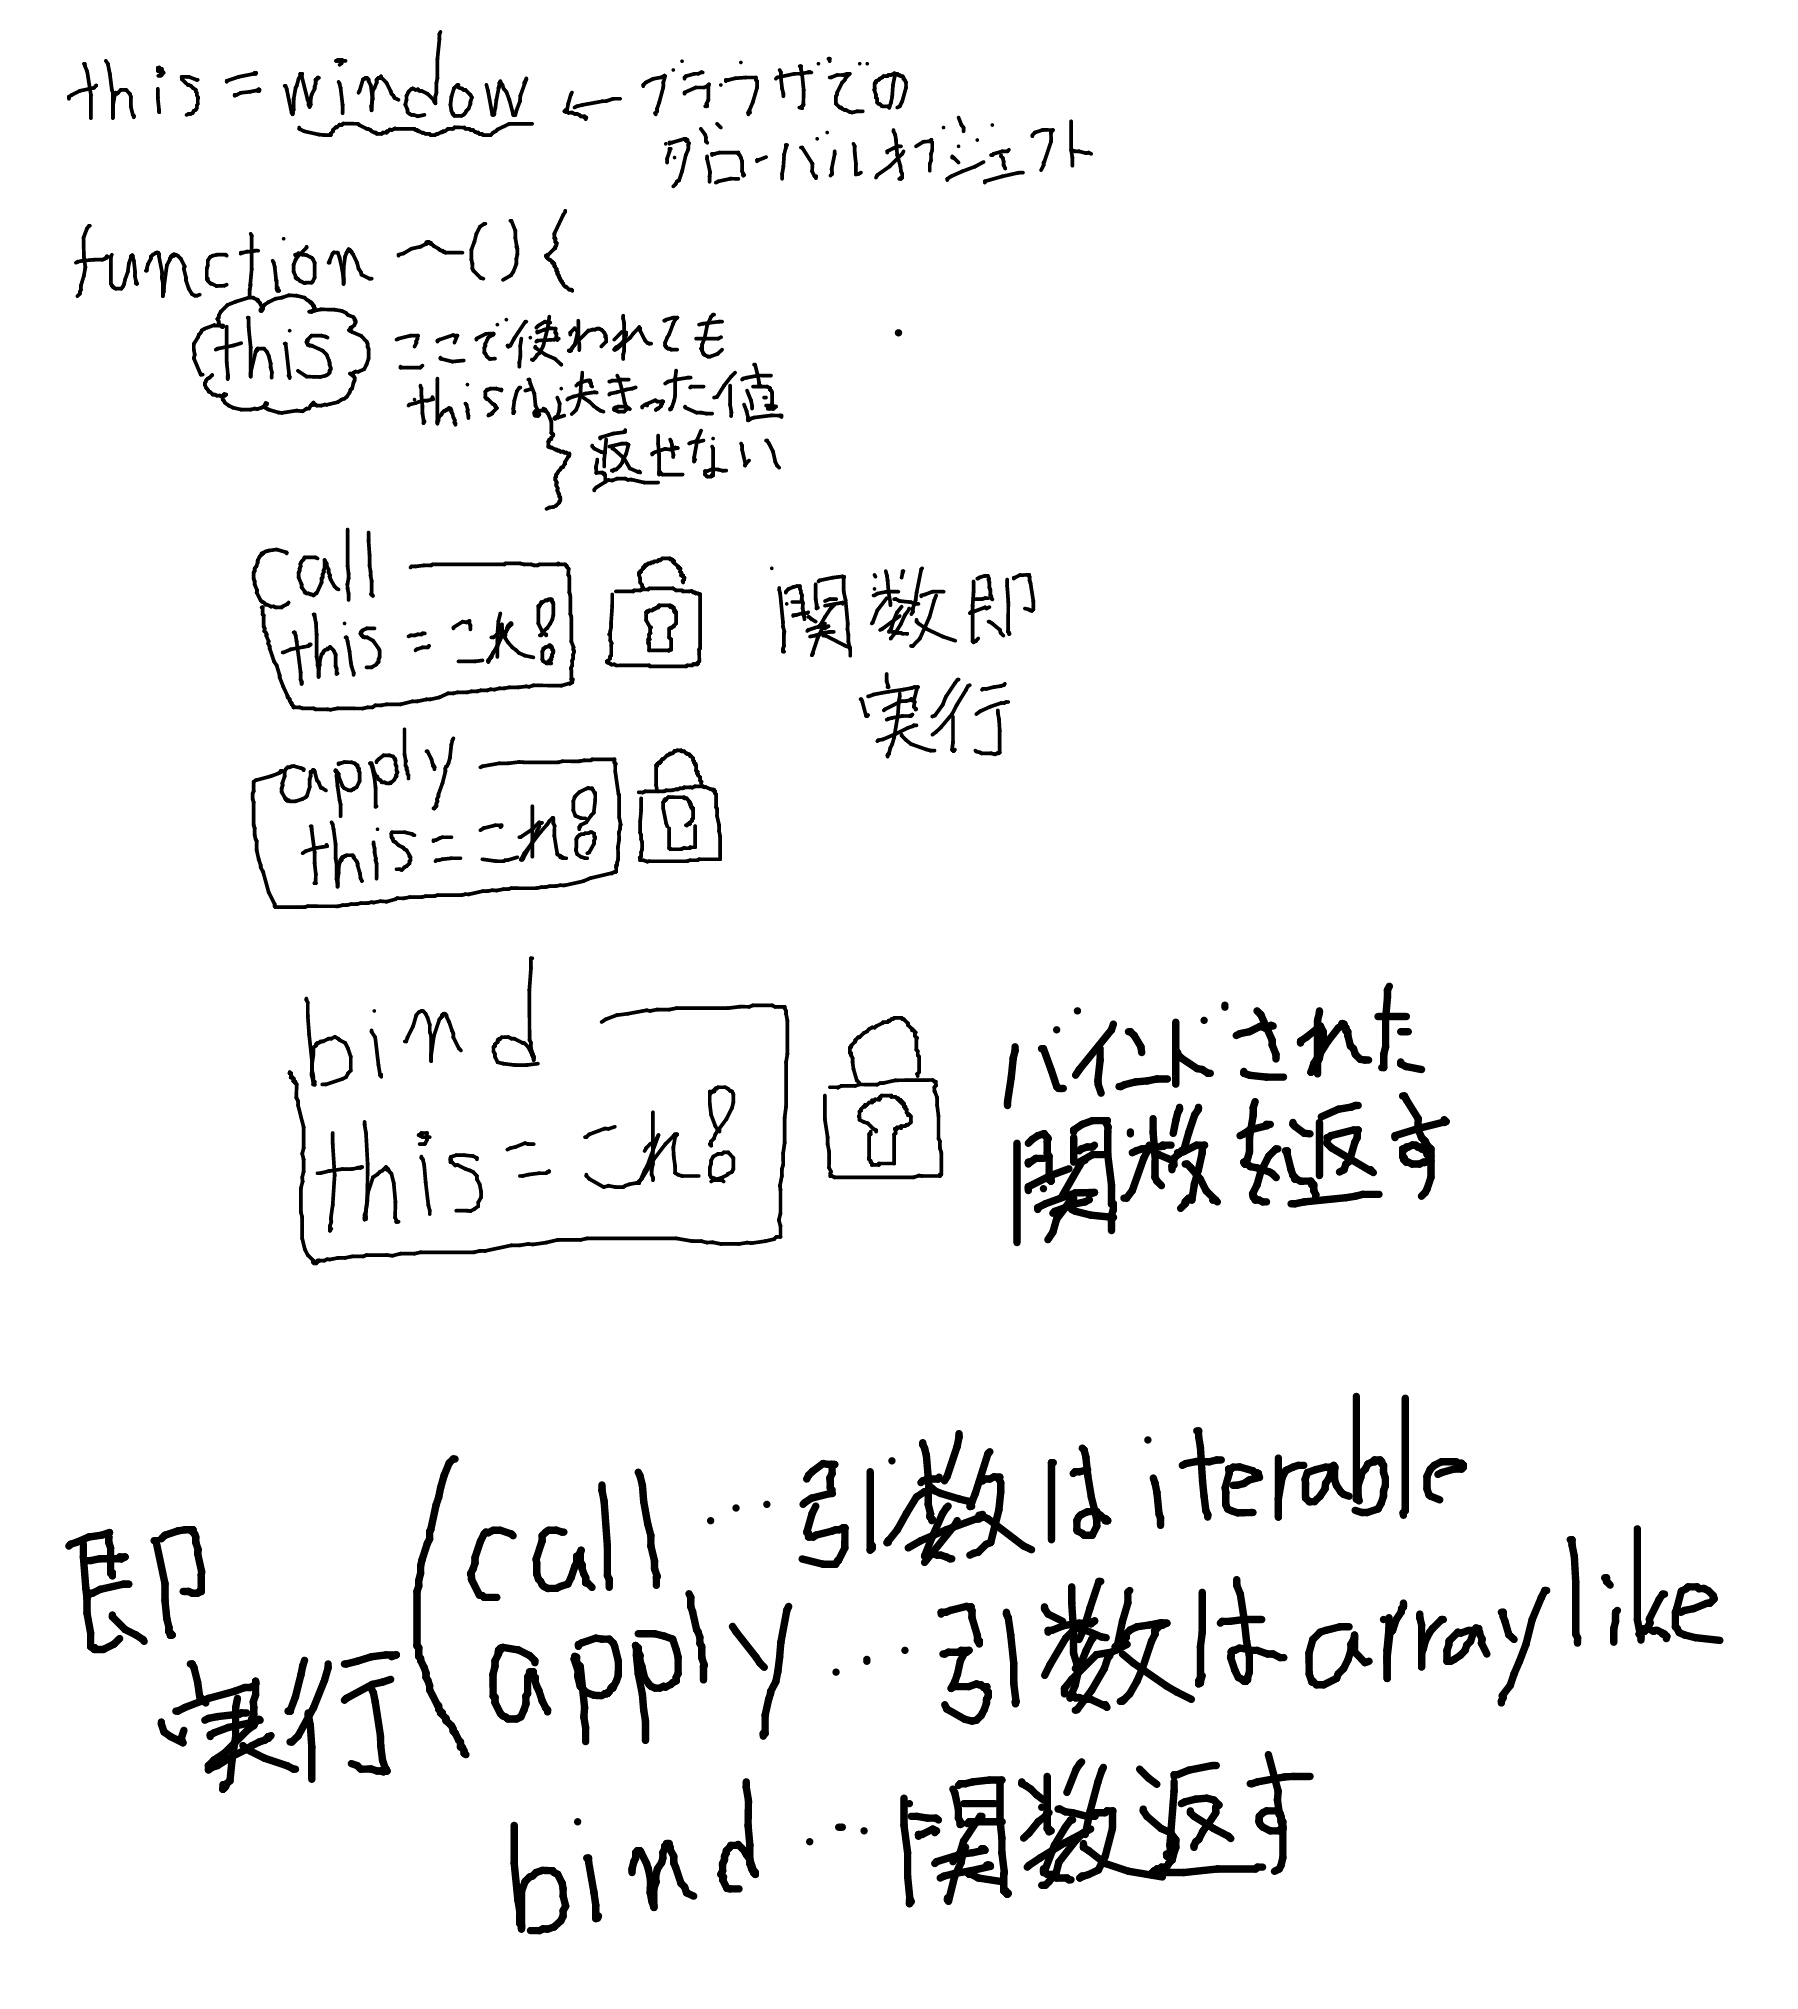 this = window ← ブラウザでの
グローバルオブジェクト
function 〜() {
this ここで使われても
thisは決まった値
} 返せない
call
this = これ!
関数即
実行
apply
this = これ!
bind
this = これ!
バインドされた
関数を返す
即
実行
( call … 引数は iterable
apply … 引数は arraylike
bind … 関数返す